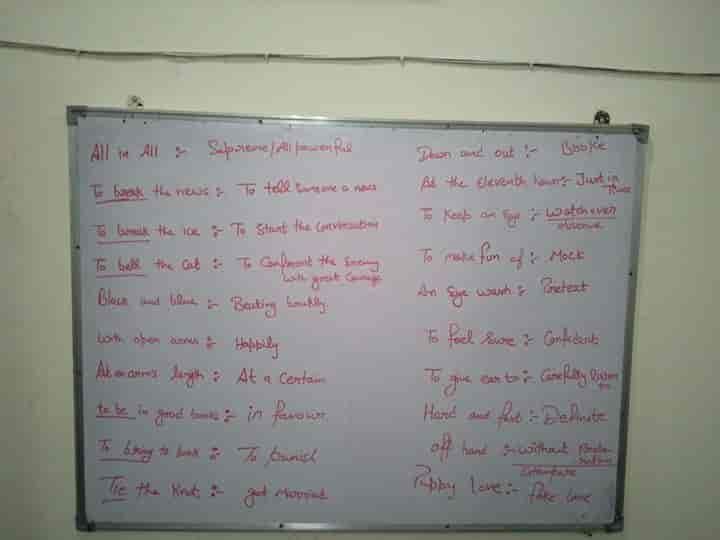 All in All :- Supreme/All powerful
To break the news :- To tell someone a news
To break the ice :- To start the conversation
To bell the cat :- To Confront the Enemy
with great Courage
Black and blue :- Beating brutally
with open arms :- Happily
At an arms length :- At a Certain
to be in good books :- in favour
To bring to book :- To punish
Tie the Knot :- get Married
Down and out :-
At the eleventh hour :- Just in
Time
To Keep an Eye :- Watch over
observe
To make fun of :- Mock
An Eye wash :- Pretext
To feel sure :- Confident
To give ear to :- Carefully listen
to
Hard and fast :- Definite
off hand :- without
Puppy love :- fake love